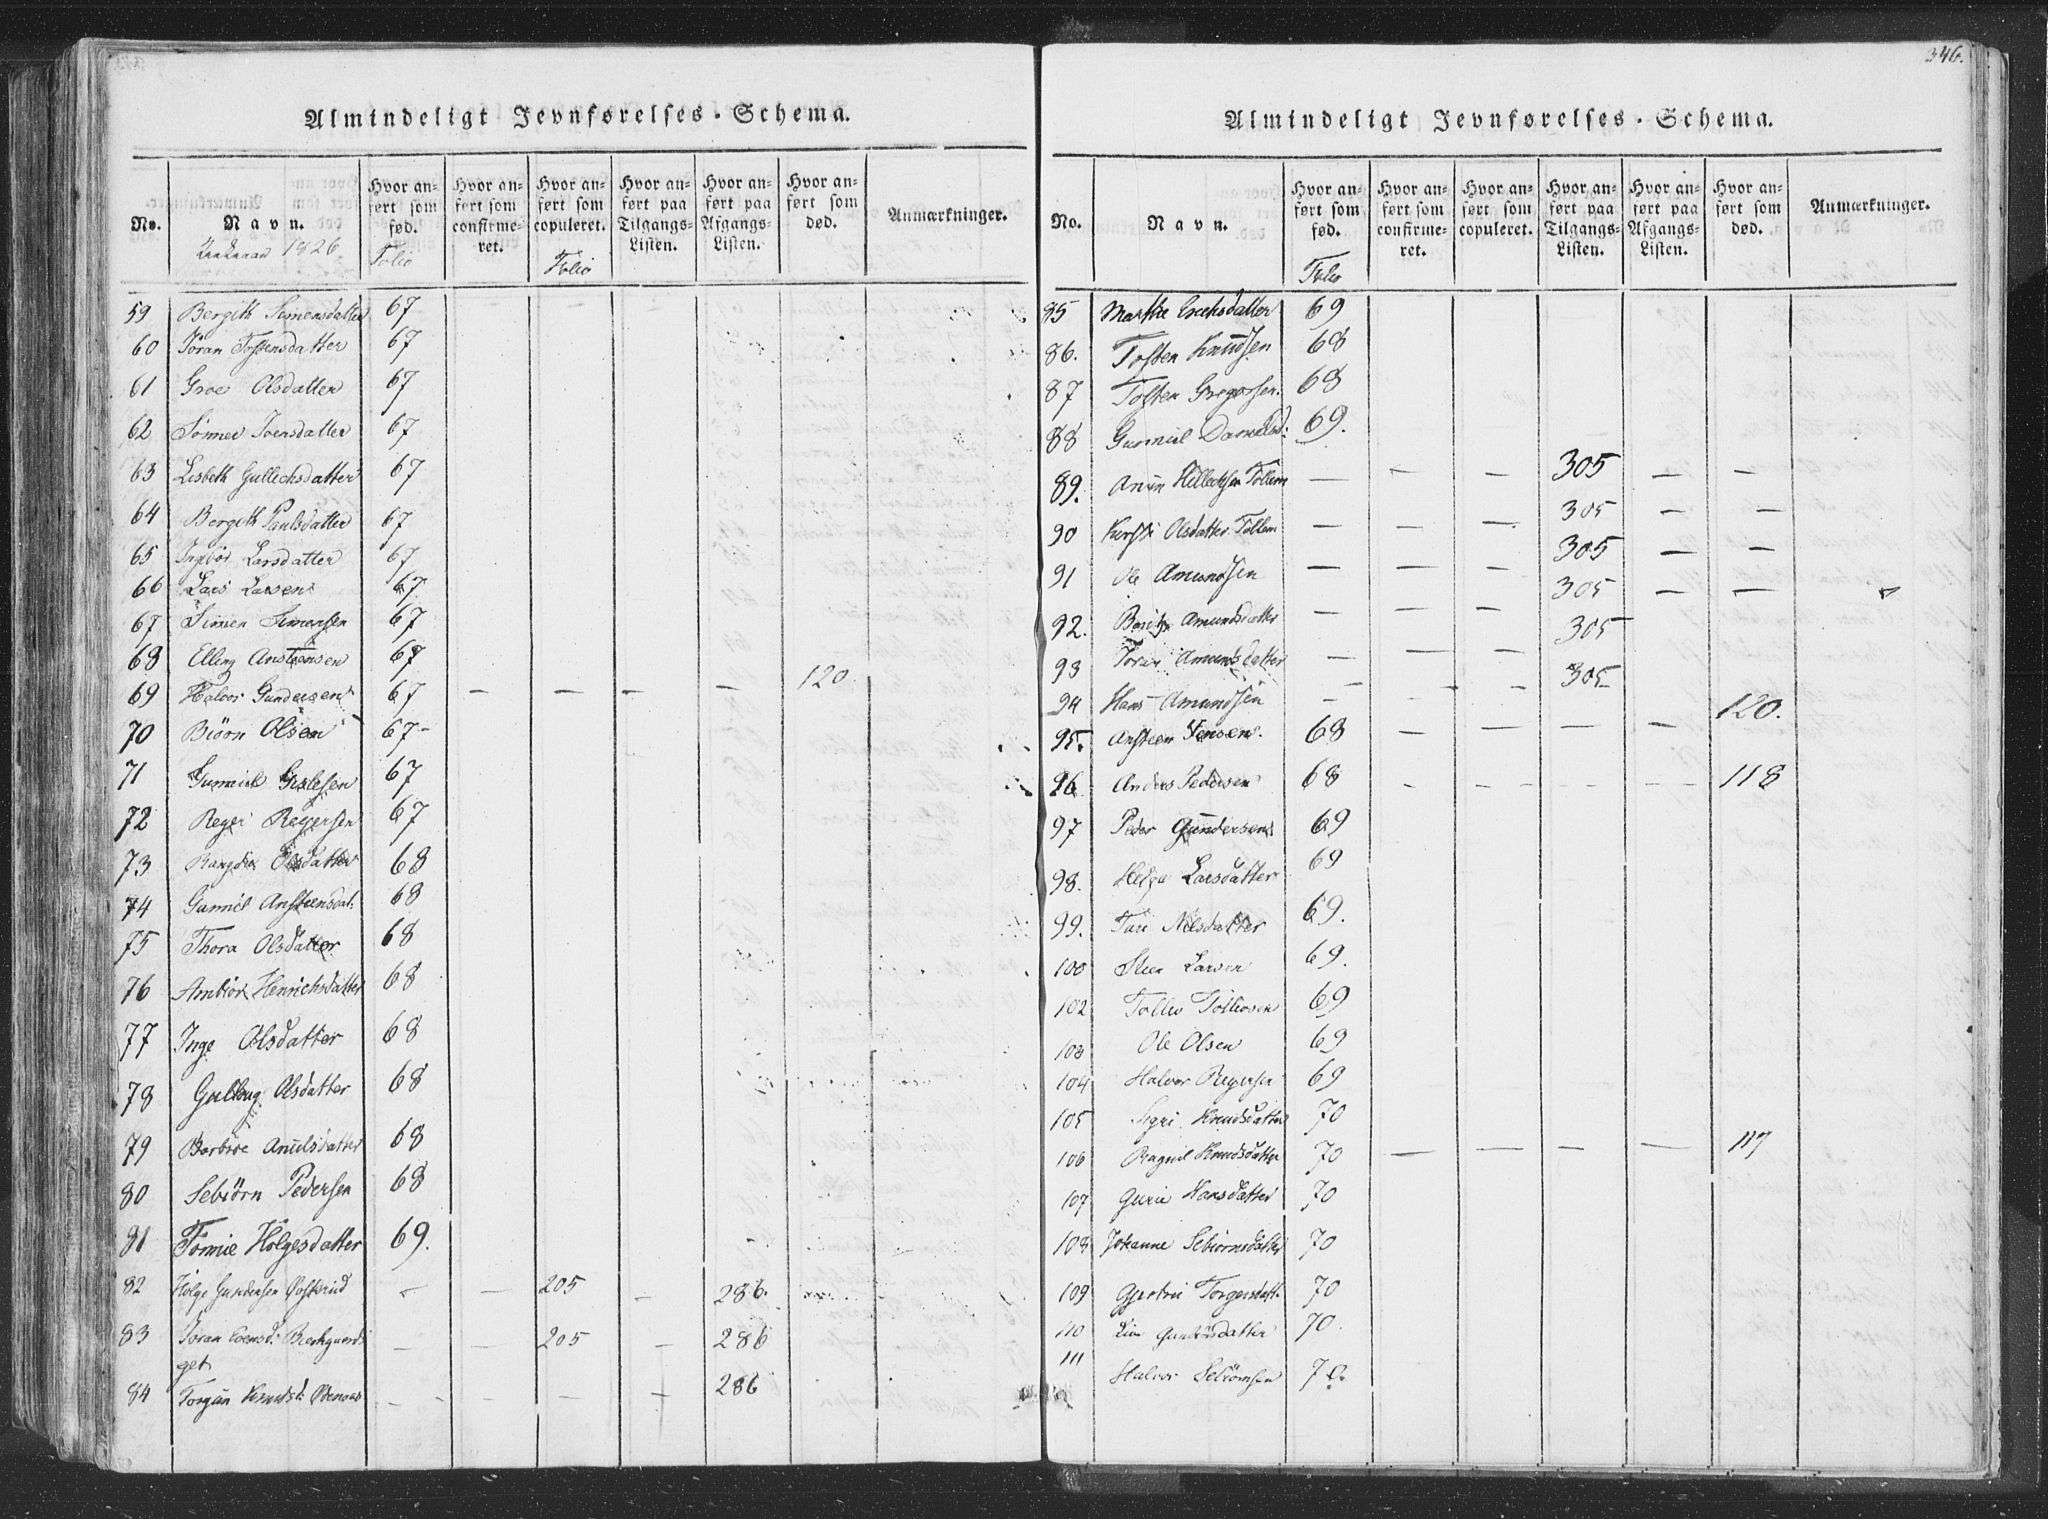 Almindeligt Jevnførelses-Schema.
No. Navn. Hvor anført som fød. Hvor anført som confirmeret. Hvor anført som copuleret. Hvor anført paa Tilgangs-Listen. Hvor anført paa Afgangs-Listen. Hvor anført som død. Anmærkninger.
1826 Folio Folio
59 Bergith Simensdatter 67
60 Jöran Tostensdatter 67
61 Groe Olsdatter 67
62 Sönnev Joensdatter 67
63 Lisbeth Gullechsdatter 67
64 Bergith Paulsdatter 67
65 Ingbör Larsdatter 67
66 Lars Larsen 67.
67 Simen Simensen 67
68 Elling Anstensen 67
69 Halvor Gundersen 67 — — — — 120
70 Biöon Olsen 67-
71 Gunniul Gislesen 67
72 Reyer Reyersen 67
73 Rangdie Olsdatter 68
74 Gunnil Anstensdat: 68
75 Thora Olsdatter 68
76 Ambior Henrichsdatter 68
77 Inge Olsdatter 68
78 Gullaug Olsdatter 68
79 Barbroe Amulsdatter 68
80 Sebiörn Pedersen 68
81 Tönnie Holgesdatter 69.
82 Holge Gundersen — — 205 — 286.
83 Jöran Evensd: — — 205 — 286
get
84 Torgun Knudsd: — — — — 286
346.
Almindeligt Jevnførelses-Schema.
No. Navn. Hvor anført som fød. Hvor anført som confirmeret. Hvor anført som copuleret. Hvor anført paa Tilgangs-Listen. Hvor anført paa Afgangs-Listen. Hvor anført som død. Anmærkninger.
Folio
85 Marthe Erichsdatter 69
86. Tosten Knudsen 68
87 Tosten Gregorsen. 68
88 Gunniul 69.
89. Amun Hellechsen Tollem — — — 305 — —
90 Kirsti Olsdatter Tollem — — — 305 — —
91 Ole Amundsen — — — 305 — —
92. Amundsdatter — — — 305 — —
93 Toran Amundsdatter — — — 305
94 Hans Amundsen — — — 305
95. Ansteen Jensen. 68 — — — — 120.
96 Anders Pedersen 68 — — — — 118
97 Peder Gundersen 69
98. Helga Larsdatter 69
99. Turi Nilsdatter 69.
100 Steen Larsen 69.
102 Tollev Tollevsen 69
103 Ole Olsen 69
104 Halvor Reyersen 69
105 Sigri Knudsdatter 70
106 Ragnil Knudsdatter 70 — — — — 117
107 Gurie Hansdatter 70
108 Johanne Sebiornsdatter 70
109 Gjertru Torgersdatt. 70
110 Liv Gundersdatter 70.
111 Halvor Sebiörnsen 70.